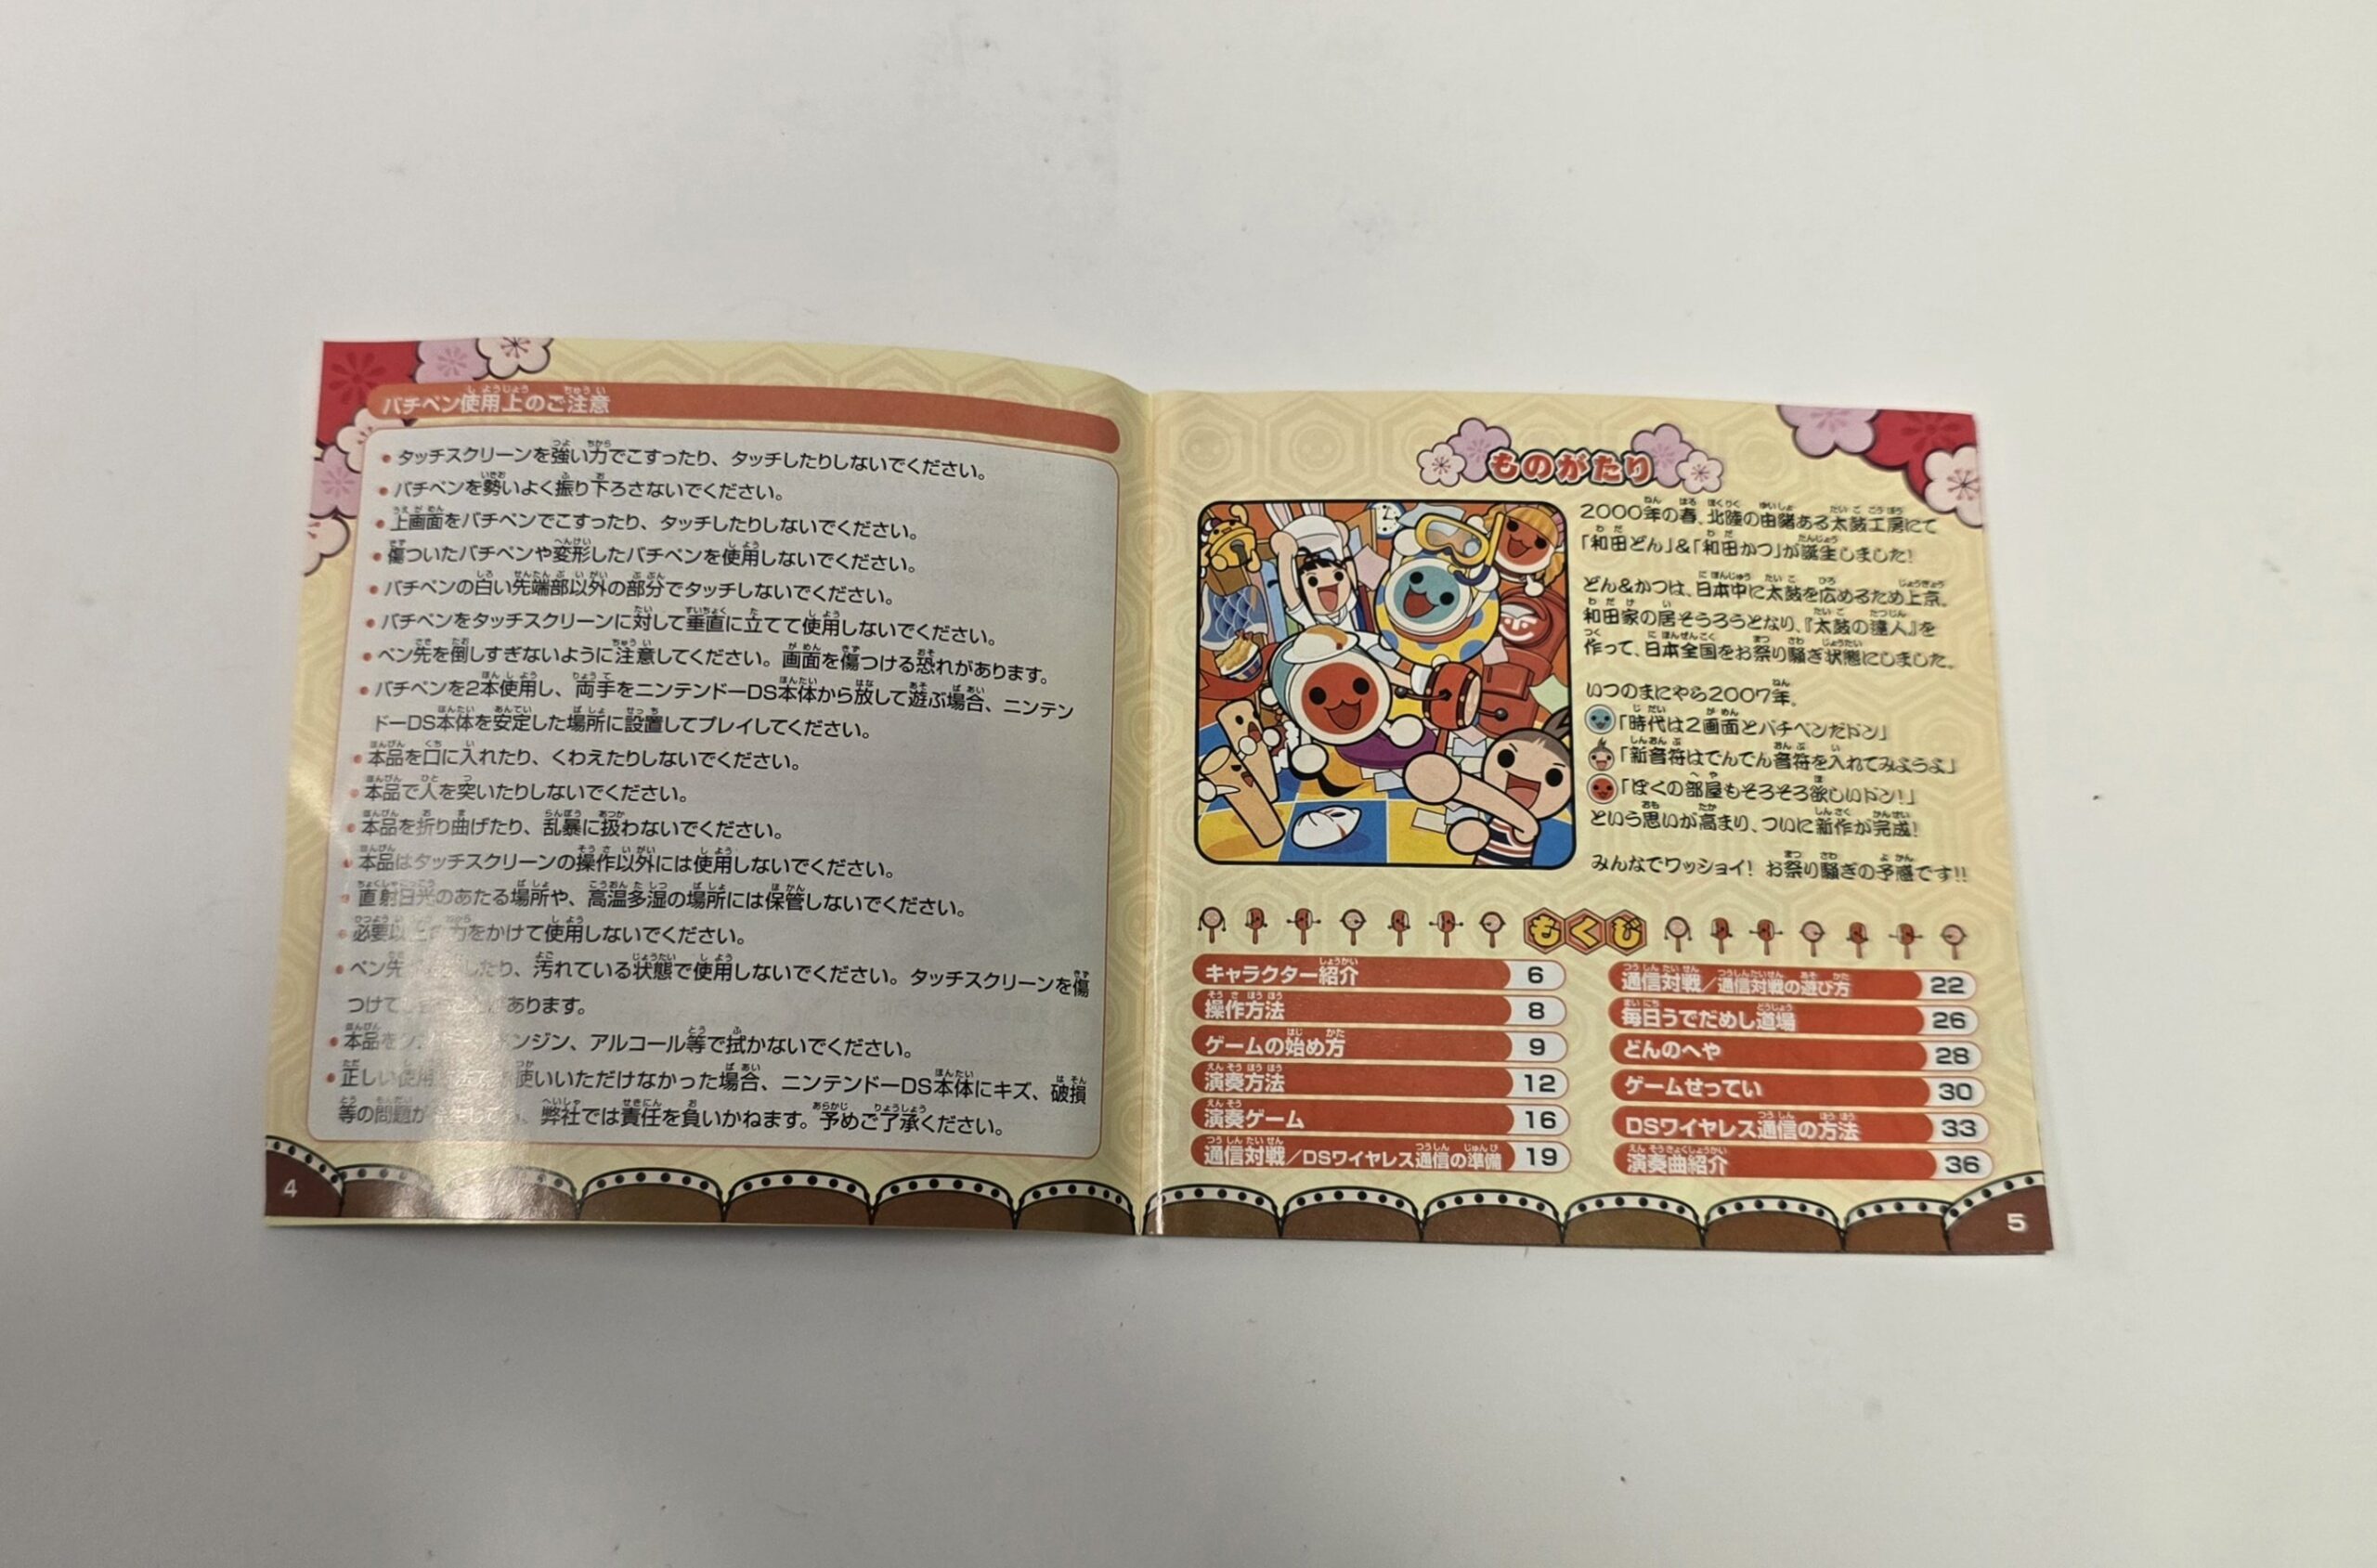 バチペン使用上のご注意
●タッチスクリーンを強い力でこすったり、タッチしたりしないでください。
●バチペンを勢いよく振り下ろさないでください。
●上画面をバチペンでこすったり、タッチしたりしないでください。
●傷ついたバチペンや変形したバチペンを使用しないでください。
●バチペンの白い先端部以外の部分でタッチしないでください。
●バチペンをタッチスクリーンに対して垂直に立てて使用しないでください。
●ペン先を倒しすぎないように注意してください。画面を傷つける恐れがあります。
●バチペンを2本使用し、両手をニンテンドーDS本体から放して遊ぶ場合、ニンテン
ドーDS本体を安定した場所に設置してプレイしてください。
●本品を口に入れたり、くわえたりしないでください。
●本品で人を突いたりしないでください。
●本品を折り曲げたり、乱暴に扱わないでください。
●本品はタッチスクリーンの操作以外には使用しないでください。
●直射日光のあたる場所や、高温多湿の場所には保管しないでください。
●必要以上の力をかけて使用しないでください。
●ペン先 したり、汚れている状態で使用しないでください。タッチスクリーンを傷
つけて あります。
●本品を ンジン、アルコール等で拭かないでください。
●正しい使用 使いいただけなかった場合、ニンテンドーDS本体にキズ、破損
等の問題が 弊社では責任を負いかねます。予めご了承ください。
4
ものがたり
2000年の春、北陸の由緒ある太鼓工房にて
「和田どん」&「和田かつ」が誕生しました!
どん&かつは、日本中に太鼓を広めるため上京。
和田家の居そうろうとなり、『太鼓の達人』を
作って、日本全国をお祭り騒ぎ状態にしました。
いつのまにやら2007年。
「時代は2画面とバチペンだドン」
「新音符はでんでん音符を入れてみようよ」
「ぼくの部屋もそろそろ欲しいドン!」
という思いが高まり、ついに新作が完成!
みんなでワッショイ! お祭り騒ぎの予感です!!
もくじ
キャラクター紹介 6
操作方法 8
ゲームの始め方 9
演奏方法 12
演奏ゲーム 16
通信対戦/DSワイヤレス通信の準備 19
通信対戦/通信対戦の遊び方 22
毎日うでだめし道場 26
どんのへや 28
ゲームせってい 30
DSワイヤレス通信の方法 33
演奏曲紹介 36
5